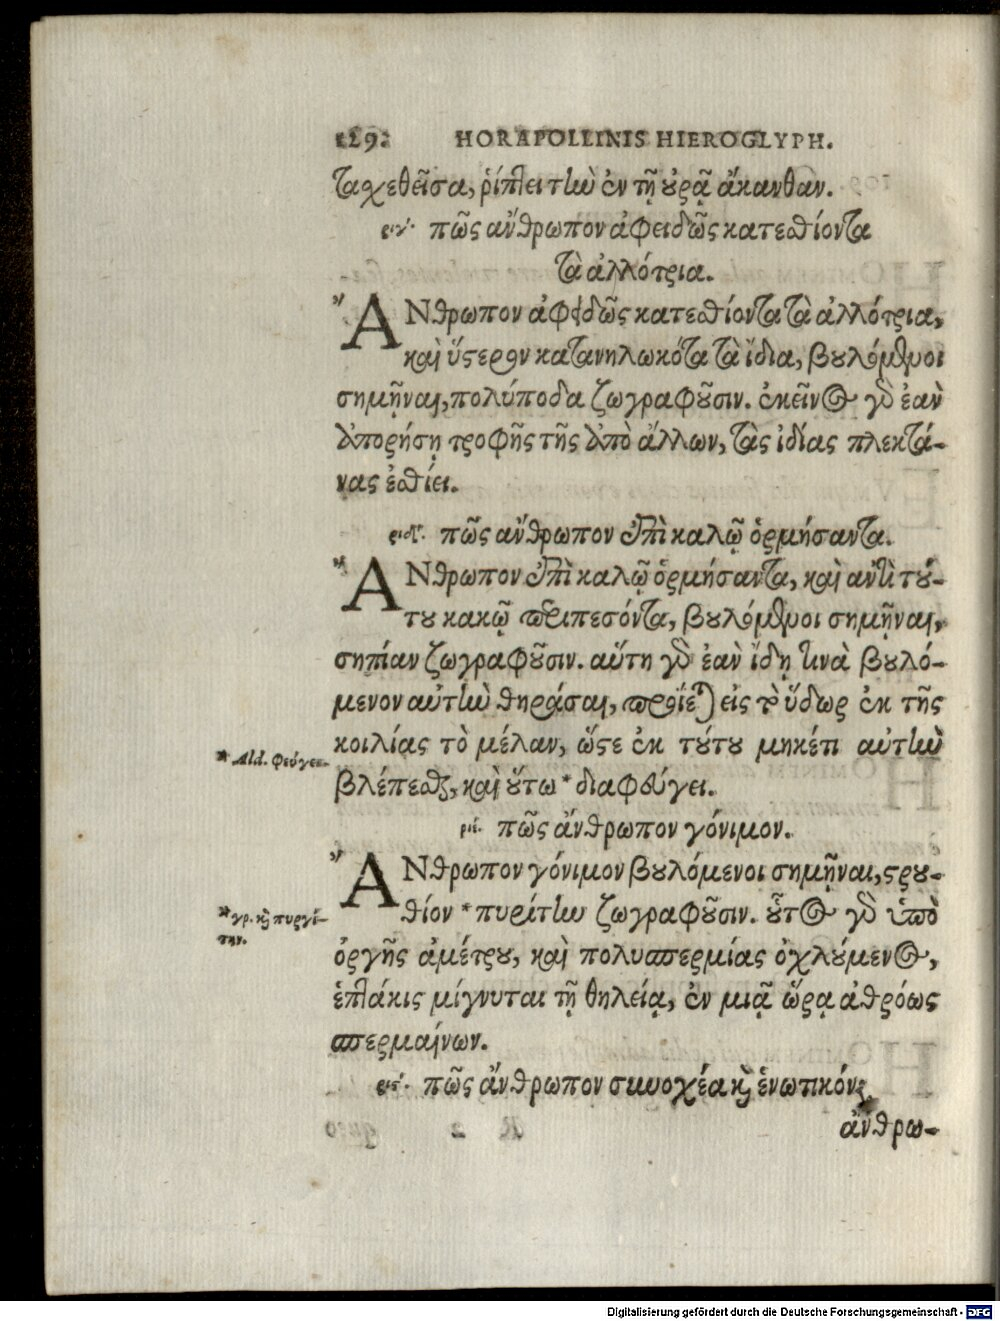 129. HORAPOLLINIS HIEROGLYPH.
ταχεθεῖσα, ῥίπτει τὴν ἐν τῇ οὐρᾷ ἄκανθαν.
ριγʹ. πῶς ἄνθρωπον ἀφειδῶς κατεσθίοντα
τὰ ἀλλότρια.
ἌΝθρωπον ἀφειδῶς κατεσθίοντα τὰ ἀλλότρια,
καὶ ὕστερον κατανηλωκότα τὰ ἴδια, βουλόμενοι
σημῆναι, πολύποδα ζωγραφοῦσιν. ἐκεῖνος γὰρ ἐὰν
ἀπορήσῃ τροφῆς τῆς ἀπὸ ἄλλων, τὰς ἰδίας πλεκτά-
νας ἐσθίει.
ριδʹ. πῶς ἄνθρωπον ἐπὶ καλῷ ὁρμήσαντα.
ἌΝθρωπον ἐπὶ καλῷ ὁρμήσαντα, καὶ ἀντὶ τού-
του κακῷ περιπεσόντα, βουλόμενοι σημῆναι,
σηπίαν ζωγραφοῦσιν. αὕτη γὰρ ἐὰν ἴδῃ τινὰ βουλό-
μενον αὐτὴν θηρᾶσαι, προΐεται εἰς τὸ ὕδωρ ἐκ τῆς
κοιλίας τὸ μέλαν, ὥστε ἐκ τούτου μηκέτι αὐτὴν
* Ald. φεύγει.
βλέπεσθαι, καὶ οὕτω * διαφεύγει.
ριεʹ. πῶς ἄνθρωπον γόνιμον.
ἌΝθρωπον γόνιμον βουλόμενοι σημῆναι, στρου-
* γρ. καὶ πυργί-
την.
θίον * πυρίτην ζωγραφοῦσιν. οὗτος γὰρ ὑπὸ
ὀργῆς ἀμέτρου, καὶ πολυσπερμίας ὀχλούμενος,
ἑπτάκις μίγνυται τῇ θηλείᾳ, ἐν μιᾷ ὥρᾳ ἀθρόως
σπερμαίνων.
ριϛʹ. πῶς ἄνθρωπον συνοχέα καὶ ἑνωτικόν.
ἄνθρω-
Digitalisierung gefördert durch die Deutsche Forschungsgemeinschaft - DFG